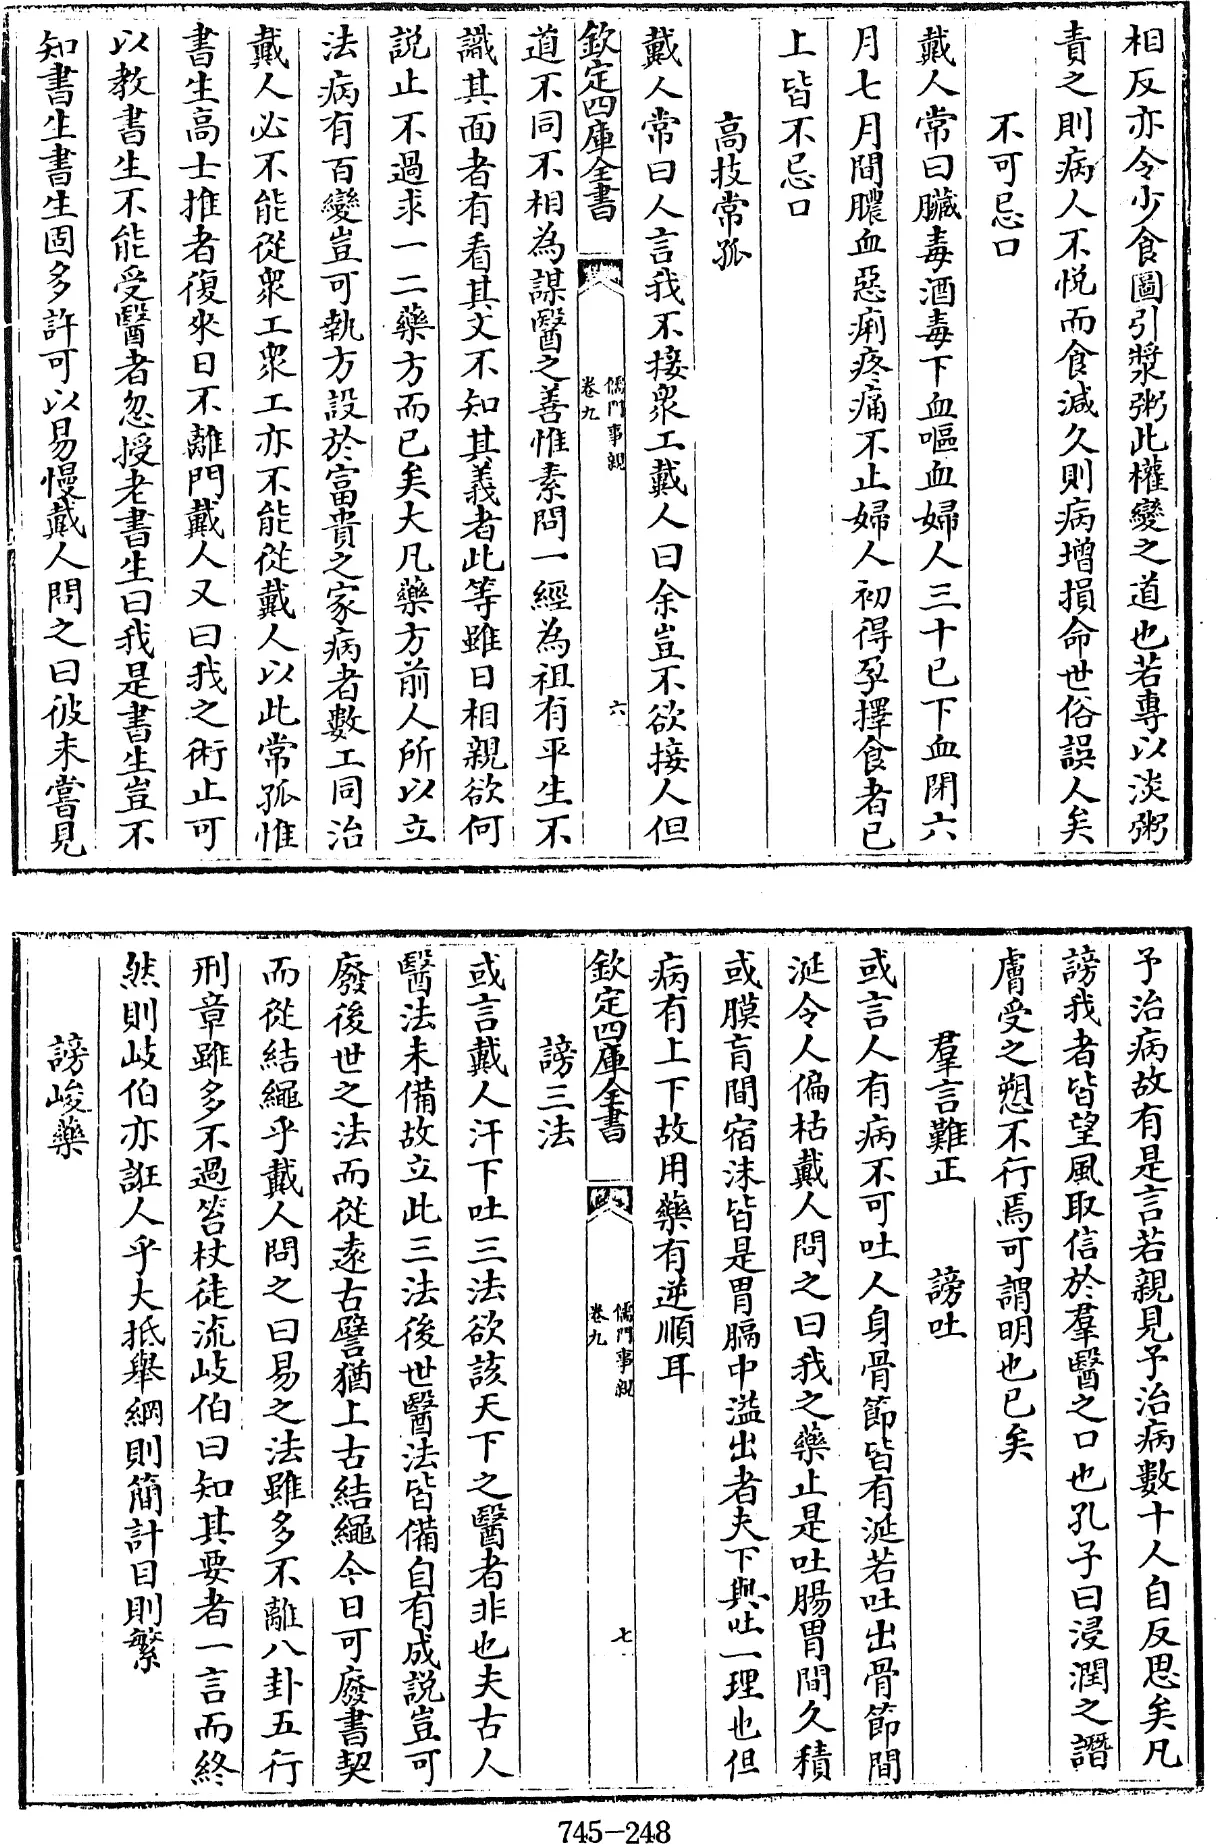 相反亦令少食圖引漿粥此權變之道也若專以淡粥
責之則病人不悅而食減久則病增損命世俗誤人矣
不可忌口
戴人常曰臟毒酒毒下血嘔血婦人三十已下血閉六
月七月間膿血惡痢疼痛不止婦人初得孕擇食者已
上皆不忌口
高技常孤
戴人常曰人言我不接衆工戴人曰余豈不欲接人但
欽定四庫全書
儒門事親
卷九
六
道不同不相為謀醫之善惟素問一經為祖有平生不
識其面者有看其文不知其義者此等雖日相親欲何
説止不過求一二藥方而已矣大凡藥方前人所以立
法病有百變豈可執方設於富貴之家病者數工同治
戴人必不能從衆工衆工亦不能從戴人以此常孤惟
書生高士推者復來日不離門戴人又曰我之術止可
以教書生不能受醫者忽授老書生曰我是書生豈不
知書生書生固多許可以易慢戴人問之曰彼未嘗見
予治病故有是言若親見予治病數十人自反思矣凡
謗我者皆望風取信於羣醫之口也孔子曰浸潤之譖
膚受之愬不行焉可謂明也已矣
羣言難正　謗吐
或言人有病不可吐人身骨節皆有涎若吐出骨節間
涎令人偏枯戴人問之曰我之藥止是吐腸胃間久積
或膜肓間宿沫皆是胃膈中溢出者夫下與吐一理也但
病有上下故用藥有逆順耳
欽定四庫全書
儒門事親
卷九
七
謗三法
或言戴人汗下吐三法欲該天下之醫者非也夫古人
醫法未備故立此三法後世醫法皆備自有成説豈可
廢後世之法而從遠古譬猶上古結繩今日可廢書契
而從結繩乎戴人問之曰易之法雖多不離八卦五行
刑章雖多不過笞杖徒流岐伯曰知其要者一言而終
然則岐伯亦誑人乎大抵舉綱則簡計目則繁
謗峻藥
745-248